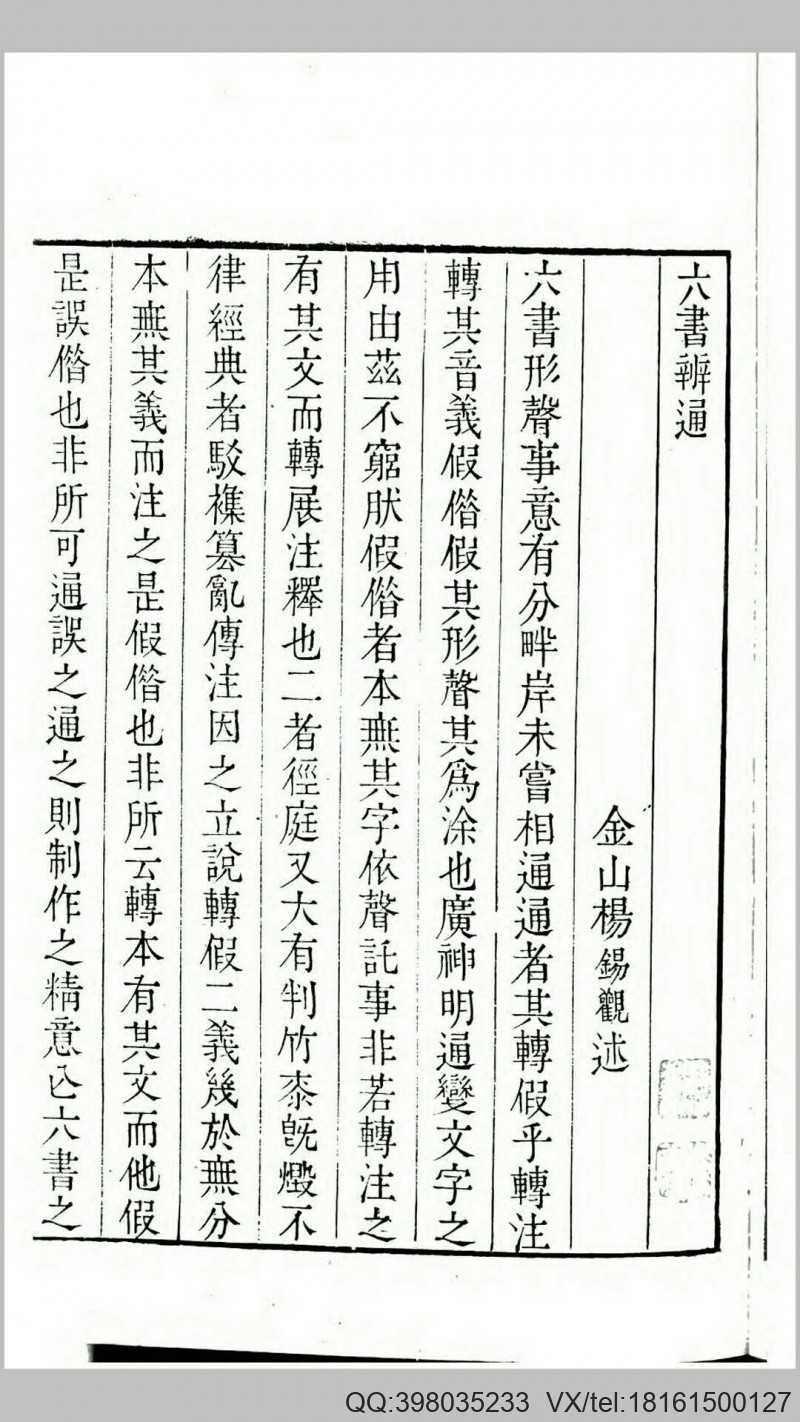 六書辨通
金山楊錫觀述
六書形聲事意有分畔岸未嘗相通通者其轉假乎轉注
轉其音義假借假其形聲其爲涂也廣神明通變文字之
用由茲不窮肰假借者本無其字依聲託事非若轉注之
有其文而轉展注釋也二者徑庭又大有判竹桼旣燬不
律經典者駁襍篡亂傳注因之立說轉假二義幾於無分
本無其義而注之是假借也非所云轉本有其文而他假
是誤借也非所可通誤之通之則制作之精意亾六書之
QQ:398035233 VX/tel:18161500127